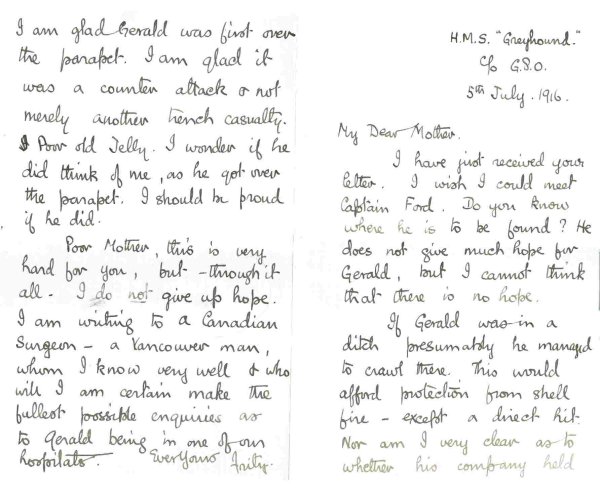 H.M.S. "Greyhound."
c/o G.P.O.
5th July. 1916.
My Dear Mother.
I have just received your
letter. I wish I could meet
Captain Ford. Do you know
where he is to be found? He
does not give much hope for
Gerald, but I cannot think
that there is no hope.
If Gerald was in a
ditch presumably he managed
to crawl there. This would
afford protection from shell
fire - except a direct hit.
Nor am I very clear as to
whether his company held
I am glad Gerald was first over
the parapet. I am glad it
was a counter attack & not
merely another trench casualty.
Poor old Jelly. I wonder if he
did think of me, as he got over
the parapet. I should be proud
if he did.
Poor Mother, this is very
hard for you, but - through it
all - I do not give up hope.
I am writing to a Canadian
Surgeon - a Vancouver man,
whom I know very well & who
will I am certain make the
fullest possible enquiries as
to Gerald being in one of our
hospitals. Ever Yours